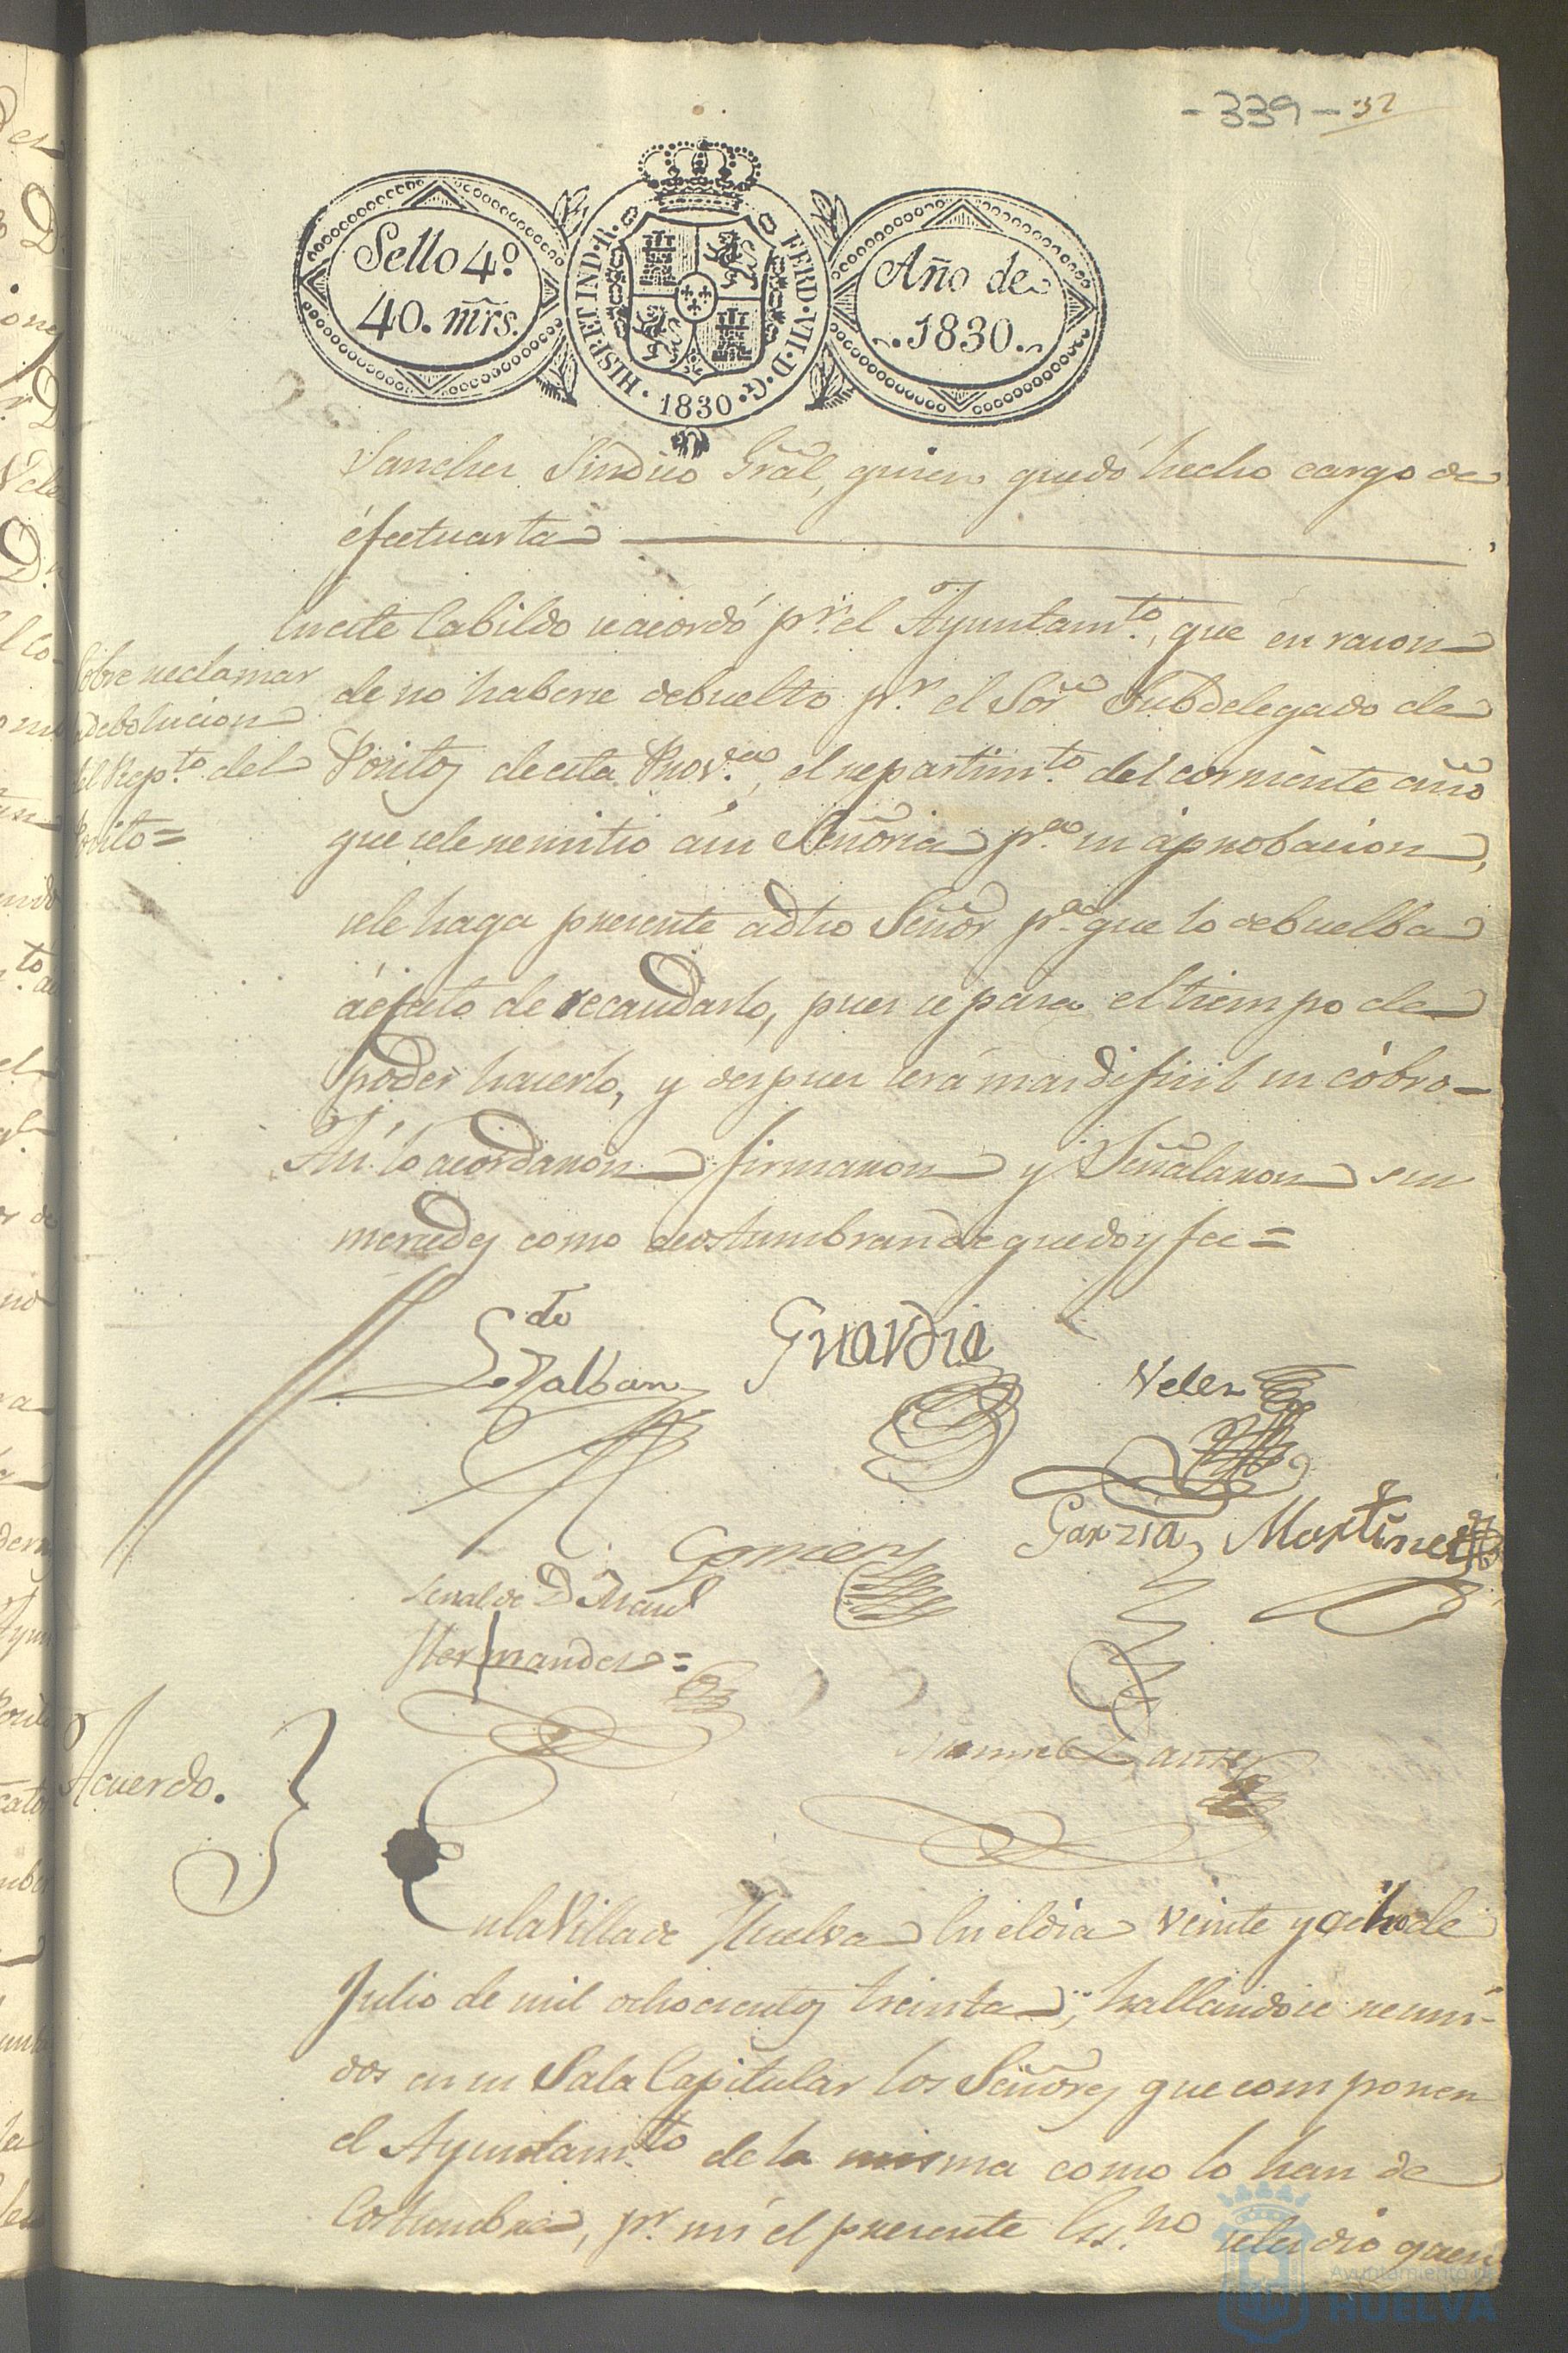 -339- 32
Sello 4º
40. mrs.
HISP. ET IND. R.
FERD. VII. D. G.
1830
Año de
.1830.
Sanches Sindico Gräl, quien quedó hecho cargo de
éfectuarla
En este Cabildo se acordó pr. el Ayuntamto., que en racion
de no haberse debuelto pr. el Sor. Subdelegado de
Positos de esta Prova., el repartimto. del corriente año
que se le remitio á su Señoria pa. su áprobacion,
se le haga presente a dho Señor pa. que lo debuelba
á efecto de recaudarlo, pues se pasa el tiempo de
poder hacerlo, y despues será mas dificil su cobro-
Asi lo acordaron firmaron y Señalaron sus
mercedes como acostumbran de que doy fee=
Sobre reclamar
la debolucion
del Repto. del
Posito=
Ldo
Galban
Guardia
Velez
Garzia
Martinez
Gomez
Señal de D. Man.l
Hernandez=
Acuerdo.
En la Villa de Huelva En el dia veinte y ocho de
Julio de mil ochocientos treinta; hallandose reuni-
dos en su Sala Capitular los Señores que componen
el Ayuntamto. de la misma como lo han de
Costumbre, pr. mi el presente Essno. se les dio quen
Ayuntamiento de
HUELVA